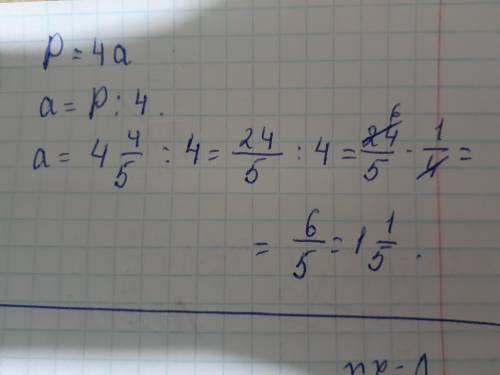 P = 4a
a = P : 4.
a = 4 4/5 : 4 = 24/5 : 4 = 24/5 · 1/4 =
= 6/5 = 1 1/5.